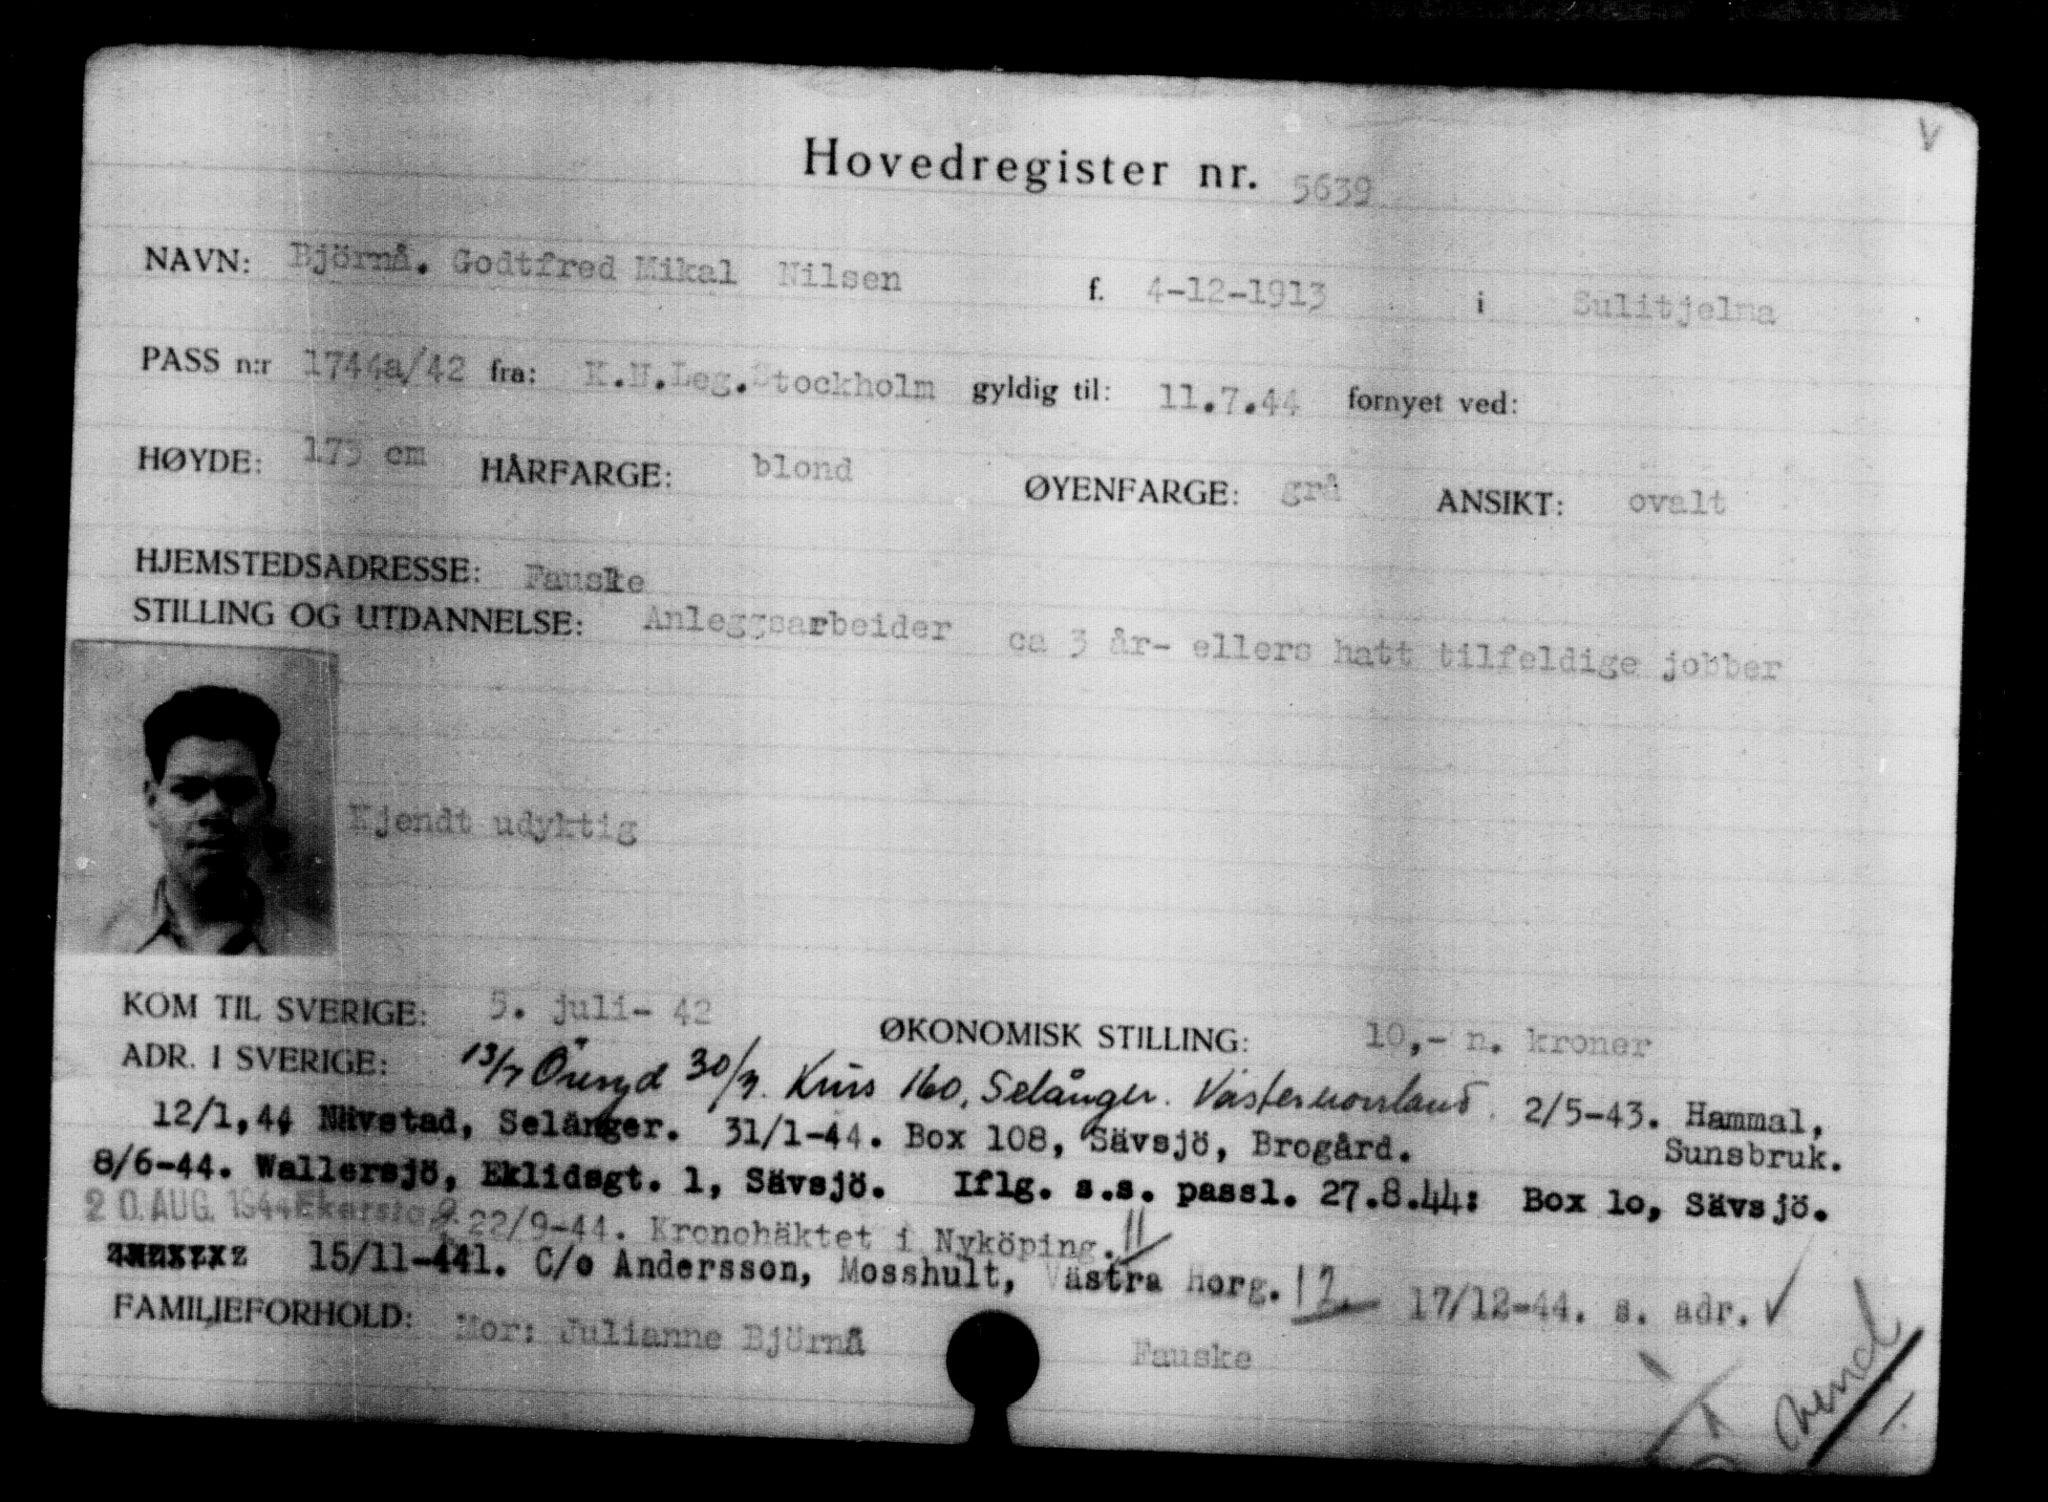 V
Hovedregister nr. 5639
NAVN: Björnå. Godtfred Mikal Nilsen f. 4-12-1913 i Sulitjelma
PASS n:r 1744a/42 fra: K.N.Leg.Stockholm gyldig til: 11.7.44 fornyet ved:
HØYDE: 173 cm HÅRFARGE: blond ØYENFARGE: grå ANSIKT: ovalt
HJEMSTEDSADRESSE: Fauske
STILLING OG UTDANNELSE: Anleggsarbeider ca 3 år- ellers hatt tilfeldige jobber
Kjendt udyktig
KOM TIL SVERIGE: 5. juli- 42 ØKONOMISK STILLING: 10,- n. kroner
ADR. I SVERIGE: 13/7 Öreryd 30/7. Krus 160, Selånger. Västernorrland. 2/5-43. Hammal,
Sunsbruk.
12/1,44 Nävstad, Selånger. 31/1-44. Box 108, Sävsjö, Brogård.
8/6-44. Wallersjö, Eklidsgt. 1, Sävsjö. Iflg. s.s. passl. 27.8.44: Box 10, Sävsjö.
20. AUG. 1944 22/9-44. Kronohäktet i Nyköping. 11
15/11-441. C/o Andersson, Mosshult, Västra Horg. 12 17/12-44. s. adr.
FAMILIEFORHOLD: Mor: Julianne Björnå Fauske